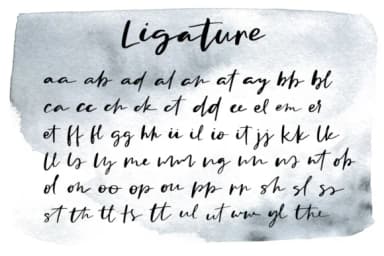 Ligature
aa ab ad al an at ay bb bl
ca cc ch ck ct dd ee el em er
et ff fl gg hh ii il io it jj kk lk
ll ls ly me mm ng nn ns nt ob
ol on oo op ou pp rr sh sl ss
st th tt ts tt ul ut ww yl the